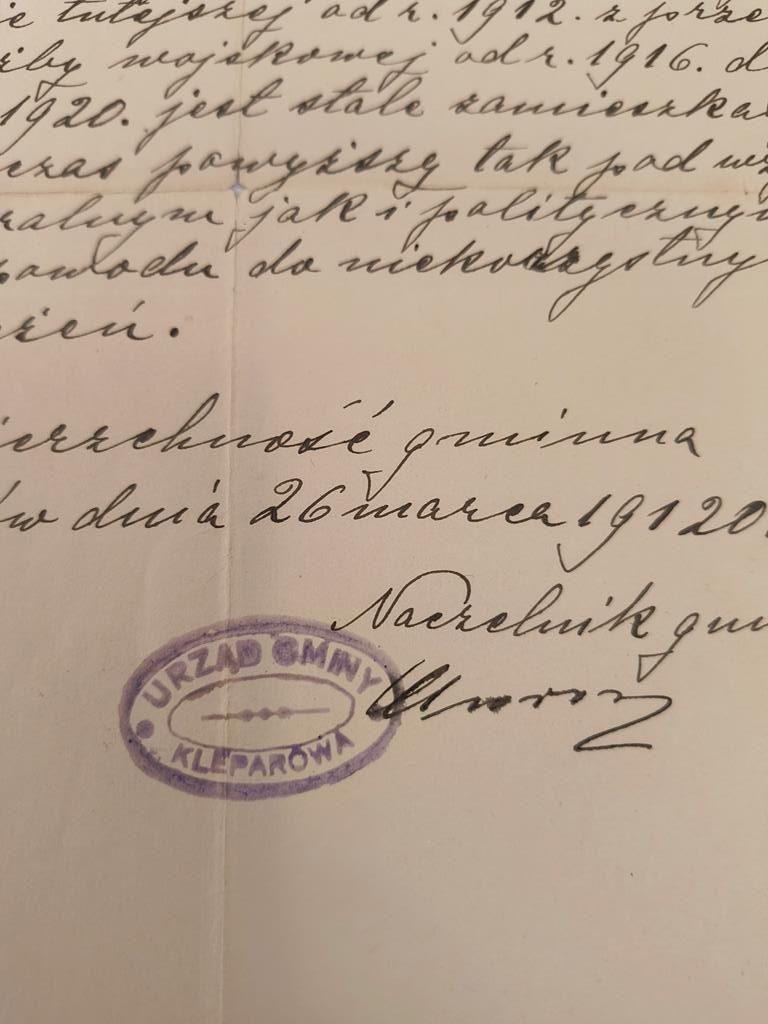 ie tutejszej od r. 1912. z prze
żby wojskowej od r. 1916. d
1920. jest stale zamieszka
czas powyższy tak pod wz
ralnym jak i politycznym
powodu do niekorzystny
żeń.
ierzchność gminna
ów dnia 26 marca 19120.
Naczelnik gmi
URZĄD GMINY
KLEPAROWA